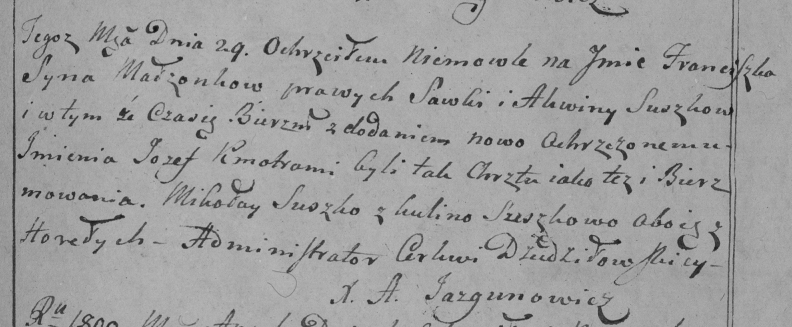 Tegoz Mca Dnia 29. Ochrzciłem Niemowle na Jmie Franciszka
Syna Małzonkow prawych Sawki i Akwiny Suszkow
i w tym że Czasie Bierzm z dodaniem nowo Ochrzczonemu
Jmienia Jozef Kmotrami byli tak Chrztu iako tez i Bierz
mowania. Mikołay Suszko z Suszkowo oboie z
Horełych - Administrator Cerkwi Dziedziłowskiey -
X. A. Jazgunowicz
1800